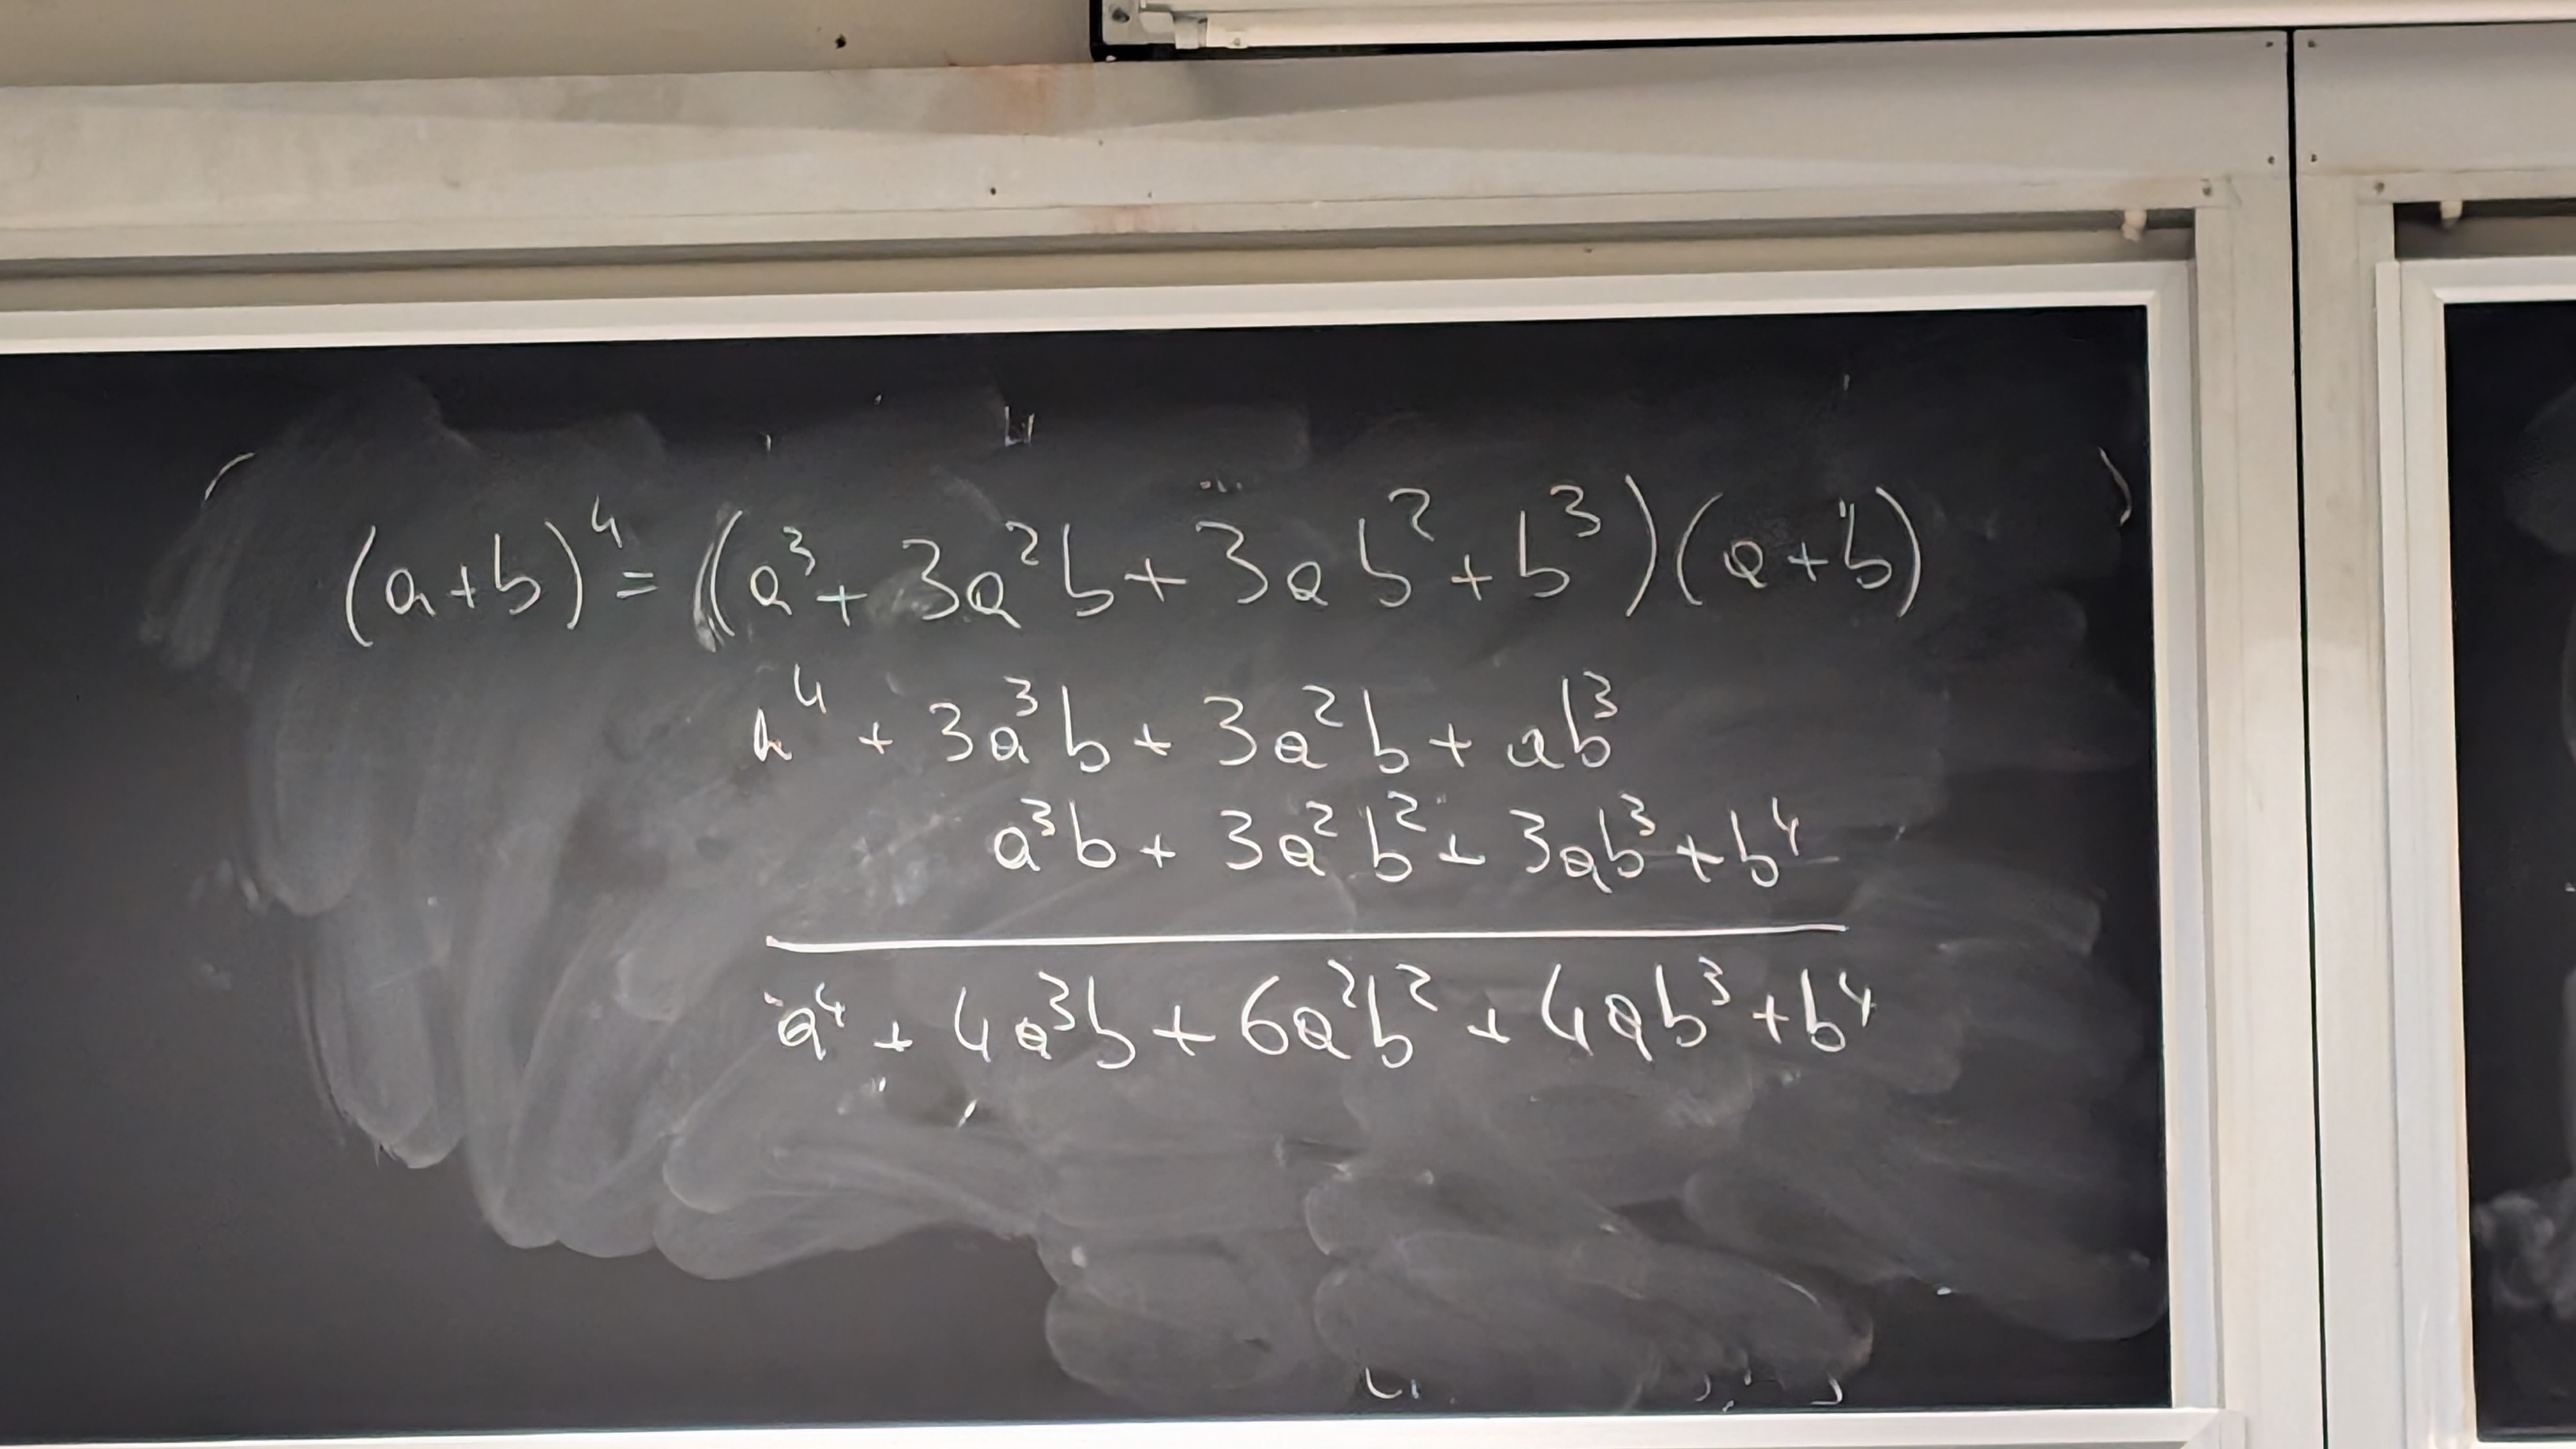 (a+b)⁴ = (a³ + 3a²b + 3ab² + b³)(a+b)
a⁴ + 3a³b + 3a²b + ab³
a³b + 3a²b² + 3ab³ + b⁴
a⁴ + 4a³b + 6a²b² + 4ab³ + b⁴